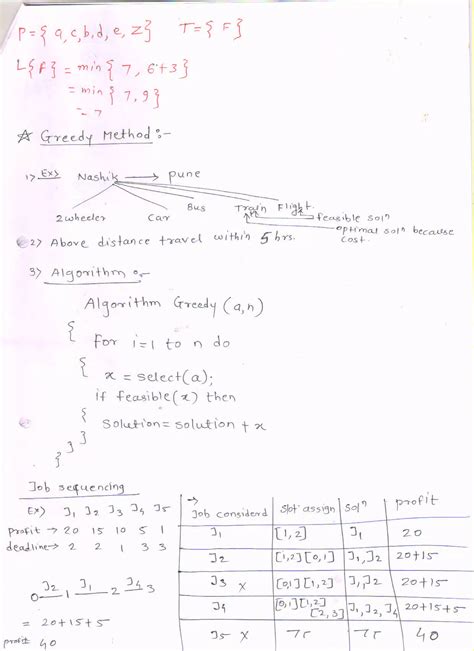 P = { a, c, b, d, e, z }    T = { F }
L{F} = min { 7, 6+3 }
= min { 7, 9 }
= 7
☆ Greedy Method :-
1) Ex) Nashik → pune
2 wheeler  Car  Bus  Train  Flight.
feasible solⁿ
optimal solⁿ because
cost.
2) Above distance travel within 5 hrs.
3) Algorithm :-
Algorithm Greedy (a,n)
{
for i=1 to n do
{
x = select(a);
if feasible(x) then
{
solution = solution + x
}
}
}
Job sequencing
Ex) J1 J2 J3 J4 J5
profit → 20 15 10 5 1
deadline → 2 2 1 3 3
0 J2 1 J1 2 J4 3
= 20+15+5
profit 40
→
Job considerd | slot assign | solⁿ | profit
J1 | [1,2] | J1 | 20
J2 | [1,2] [0,1] | J1, J2 | 20+15
J3 x | [0,1] [1,2] | J1, J2 | 20+15
J4 | [0,1] [1,2] [2,3] | J1, J2, J4 | 20+15+5
J5 x | | | 40